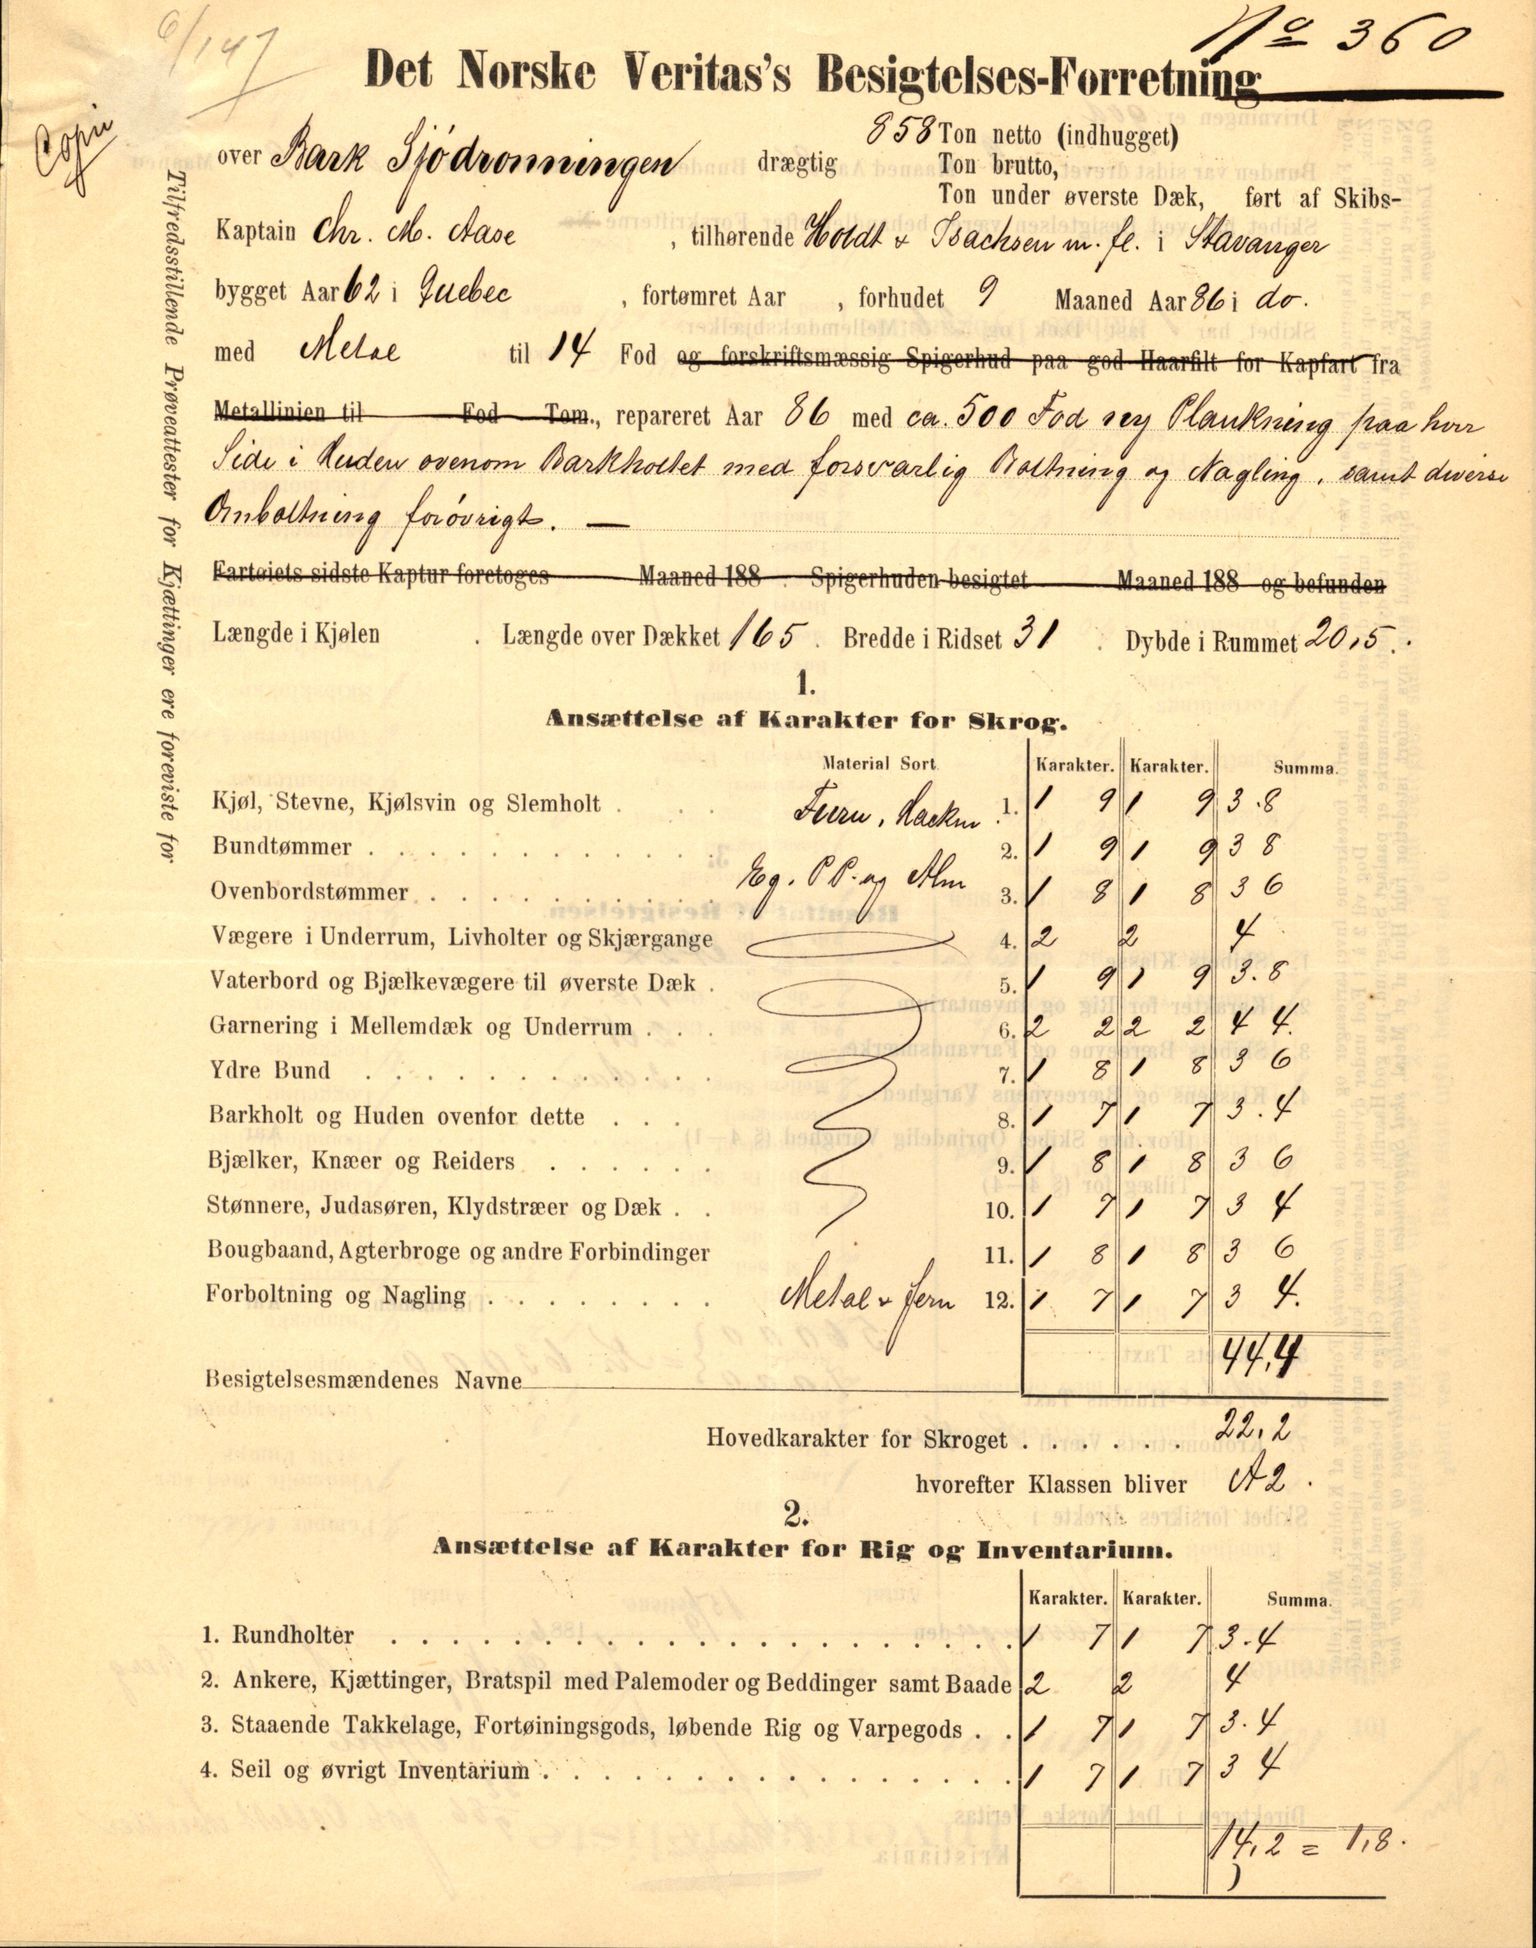 6/147
No 360
Copii
Det Norske Veritas's Besigtelses-Forretning
over Bark Sjödronningen drægtig 858 Ton netto (indhugget)
Ton brutto,
Ton under øverste Dæk, ført af Skibs-
Kaptain Chr. M. Aase, tilhørende Holdt & Isachsen m. fl. i Stavanger
bygget Aar 62 i Quebec, fortømret Aar , forhudet 9 Maaned Aar 86 i do.
med Metal til 14 Fod og forskriftsmæssig Spigerhud paa god Haarfilt for Kapfart fra
Metallinien til Fod Tom., repareret Aar 86 med ca. 500 Fod ny Plankning paa hver
Side i Huden ovenom Barkholtet med forsvarlig Boltning og Nagling, samt diverse
Omboltning forövrigt. —
Fartøiets sidste Kaptur foretoges Maaned 188 . Spigerhuden besigtet Maaned 188 og befunden
Længde i Kjølen . Længde over Dækket 165 . Bredde i Ridset 31 . Dybde i Rummet 20,5 .
Tilfredsstillende Prøveattester for Kjættinger ere foreviste for
1.
Ansættelse af Karakter for Skrog.
Material Sort Karakter. Karakter. Summa.
Kjøl, Stevne, Kjølsvin og Slemholt . . . Furu, Hackm. 1. 1 9 1 9 3.8
Bundtømmer . . . 2. 1 9 1 9 3 8
Ovenbordstømmer . . . Eg. P P. og Alm 3. 1 8 1 8 3 6
Vægere i Underrum, Livholter og Skjærgange 4. 2 2 4
Vaterbord og Bjælkevægere til øverste Dæk . 5. 1 9 1 9 3.8
Garnering i Mellemdæk og Underrum . . . 6. 2 2 2 2 4 4.
Ydre Bund . . . 7. 1 8 1 8 3 6
Barkholt og Huden ovenfor dette . . . 8. 1 7 1 7 3.4
Bjælker, Knæer og Reiders . . . 9. 1 8 1 8 3 6
Stønnere, Judasøren, Klydstræer og Dæk . . 10. 1 7 1 7 3 4
Bougbaand, Agterbroge og andre Forbindinger 11. 1 8 1 8 3 6
Forboltning og Nagling . . . Metal & Jern 12. 1 7 1 7 3 4.
44,4
Besigtelsesmændenes Navne
Hovedkarakter for Skroget . . . 22,2
hvorefter Klassen bliver A2.
2.
Ansættelse af Karakter for Rig og Inventarium.
Karakter. Karakter. Summa.
1. Rundholter . . . 1 7 1 7 3.4
2. Ankere, Kjættinger, Bratspil med Palemoder og Beddinger samt Baade 2 2 4
3. Staaende Takkelage, Fortøiningsgods, løbende Rig og Varpegods . . 1 7 1 7 3.4
4. Seil og øvrigt Inventarium . . . 1 7 1 7 3 4
14,2 = 1,8.